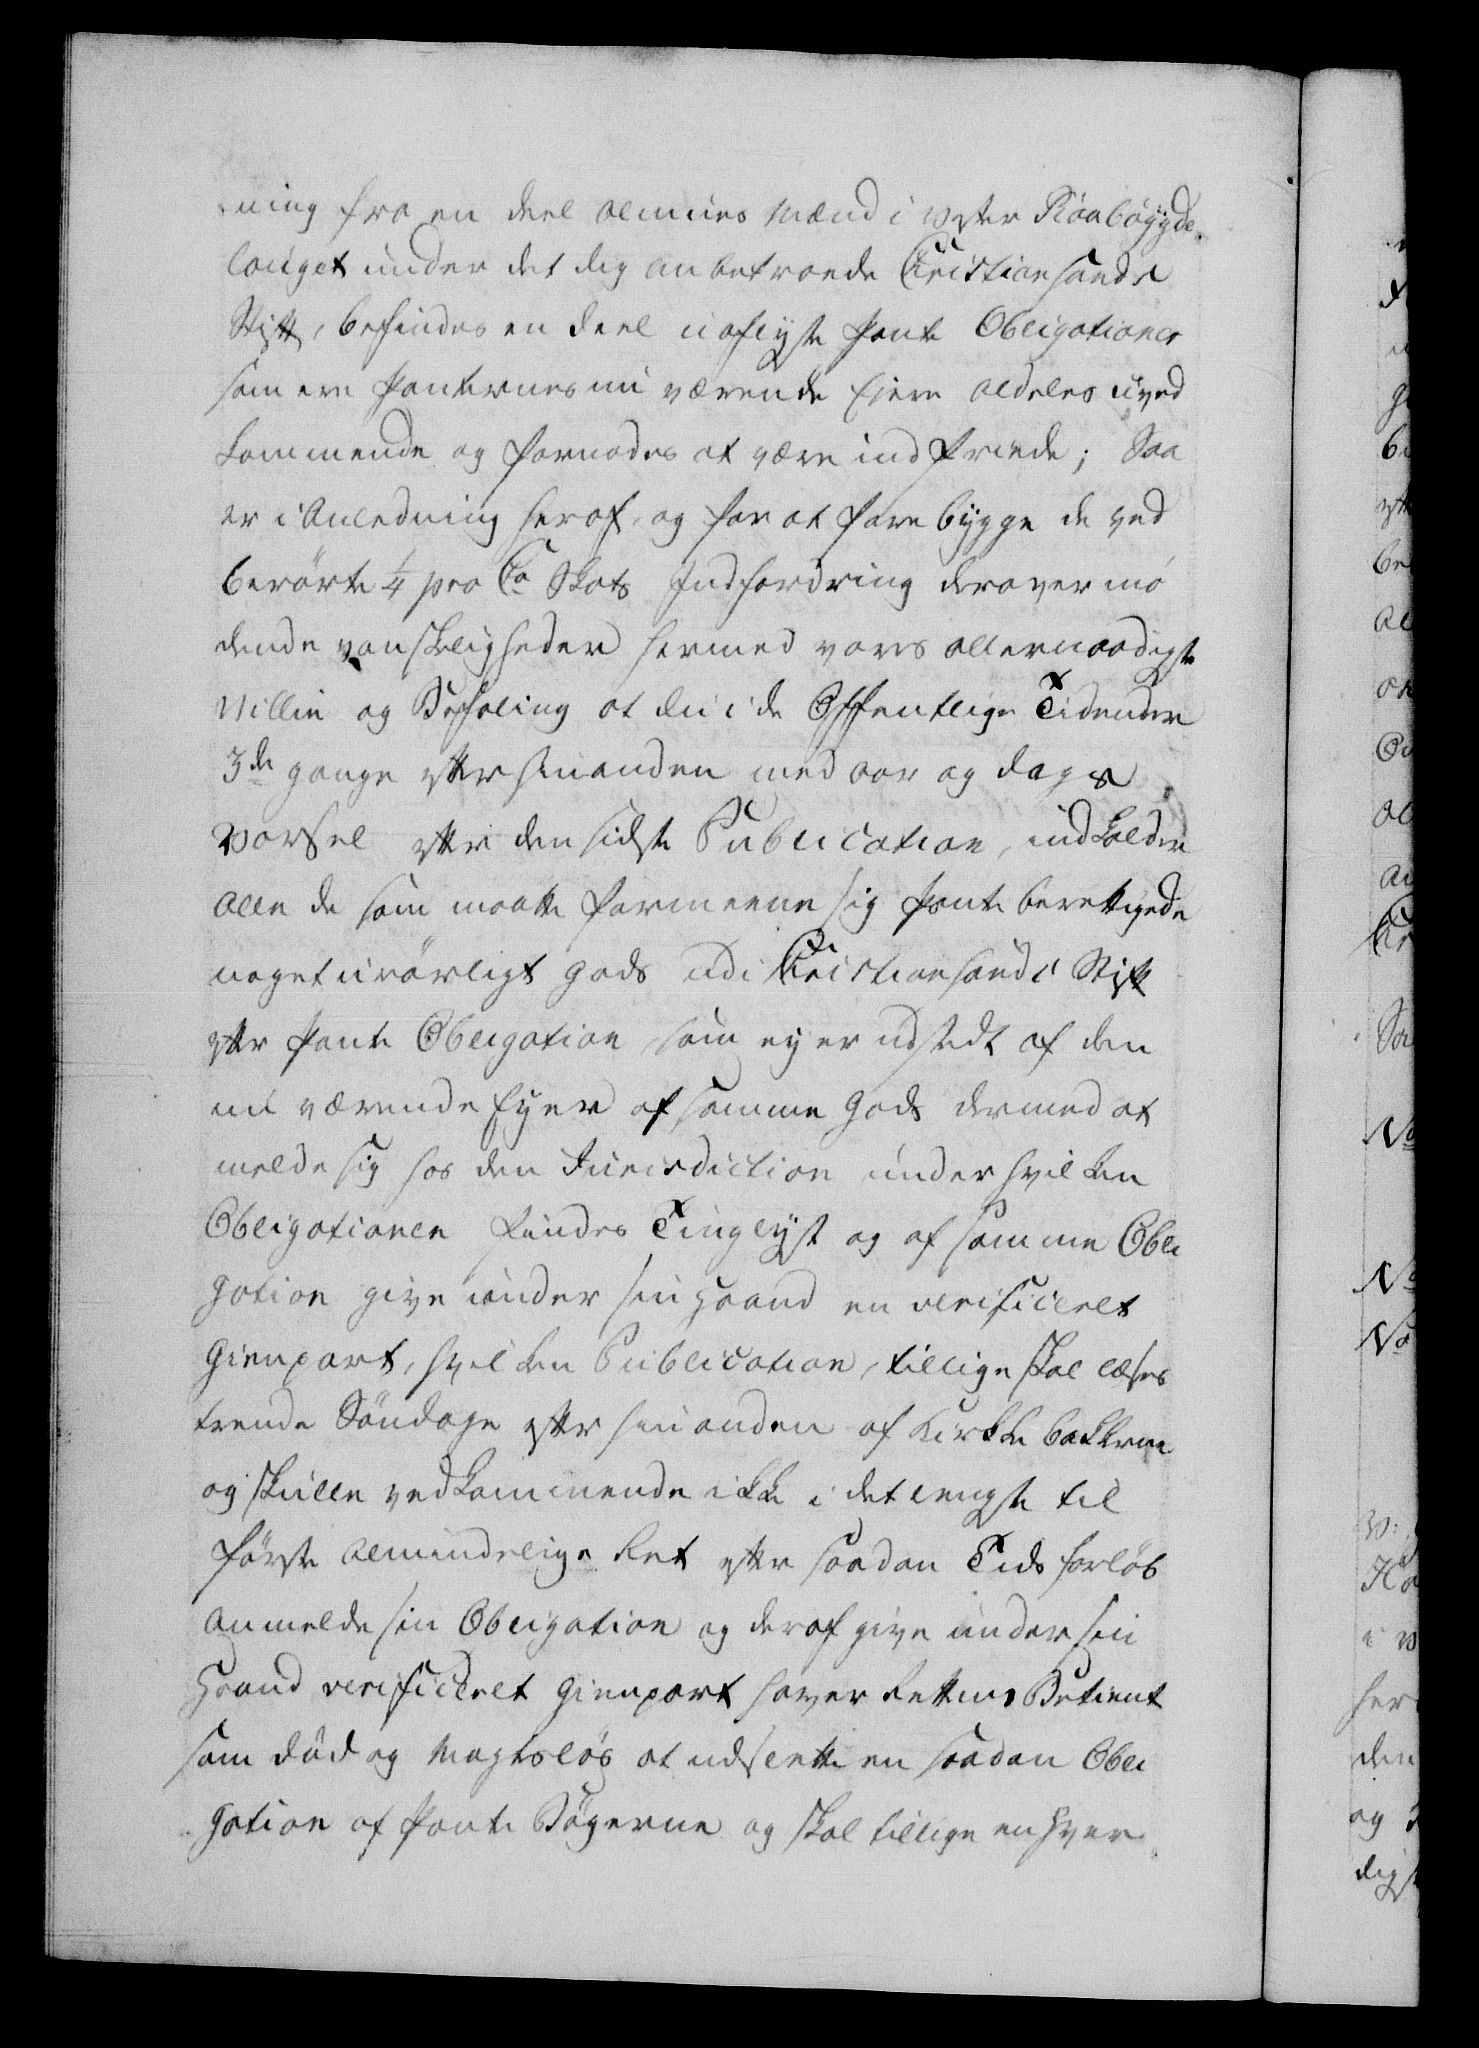 ning fra en deel Almues Mænd i Vester Raabøygde-
lauget under det dig anbetroede Christiansands
Stift, befindes en deel uaflyste Pante Obligationer
som ere Panternes nu værende Ejere aldeles uved
kommende og formodes at være indfriede; Saa
er i Anledning heraf, og for at forebygge de ved
berørte 1/4 pro Cto Skats Indfordring derover mø
dende vanskeligheder hermed vores allernaadigste
Villie og Befaling at du i de Offentlige Tidender
3de gange efter hinanden med aar og dags
Varsel efter den sidste Publication, indkalder
alle de som maatte formeene sig Panteberettigede
noget urørligt Gods udi Christiansands Stift
efter Pante Obligation, som ey er udstedt af den
nu værende Eyer af samme Gods dermed at
melde sig hos den Jurisdiction under hvilken
Obligationen findes Tinglyst og af samme Obli
gation give under sin Haand en verificeret
Gienpart, hvilken Publication, tillige skal læses
trende Søndage efter hinanden af Kirkebakkerne
og skulle vedkommende ikke i det lengste til
første almindelige Ret efter saadan Tids forløb
anmelde sin Obligation og deraf give under sin
Haand verificeret Gienpart haver Rettens Betient
som død og Magtesløs at udslette en saadan Obli
gation af Pante Bøgerne og skal tillige enhver